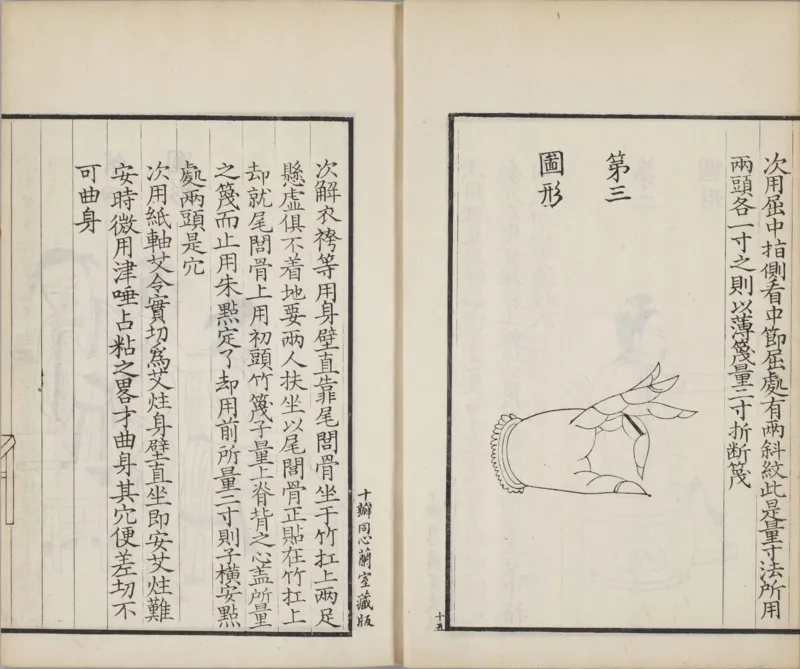 次用屈中指側看中節屈處有兩斜紋此是量寸法所用
兩頭各一寸之則以薄篾量二寸折断篾
第三
圖形
十五
十瓣同心蘭室藏版
次解衣袴等用身壁直靠尾閭骨坐于竹扛上兩足
懸虛俱不着地要兩人扶坐以尾閭骨正貼在竹扛上
却就尾閭骨上用初頭竹篾子量上脊背之心盖所量
之篾而止用朱㸃定了却用前所量二寸則子橫安㸃
處兩頭是穴
次用紙軸艾令實切爲艾炷身壁直坐即安艾炷難
安時微用津唾占粘之畧才曲身其穴便差切不
可曲身